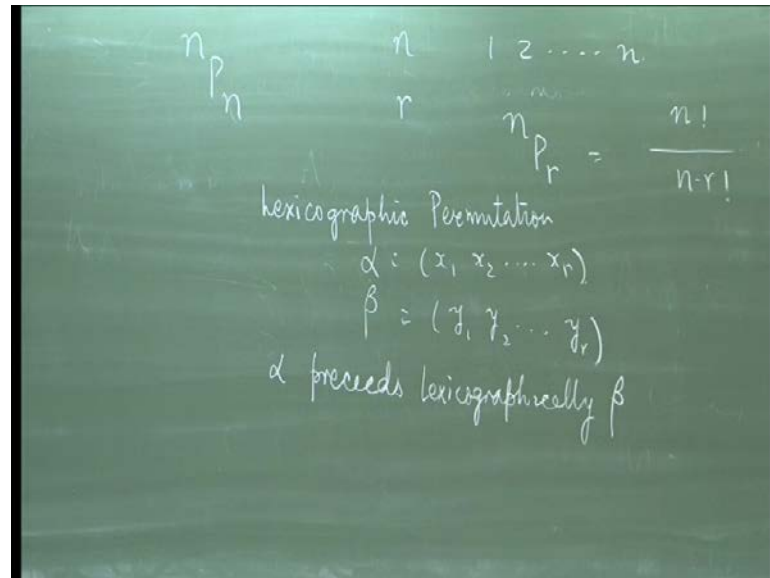 nPn n 1 2 ..... n.
r nPr = n! / n-r!
Lexicographic Permutation
α = (x₁ x₂ .... xᵣ)
β = (y₁ y₂ ... yᵣ)
α preceeds lexicographically β